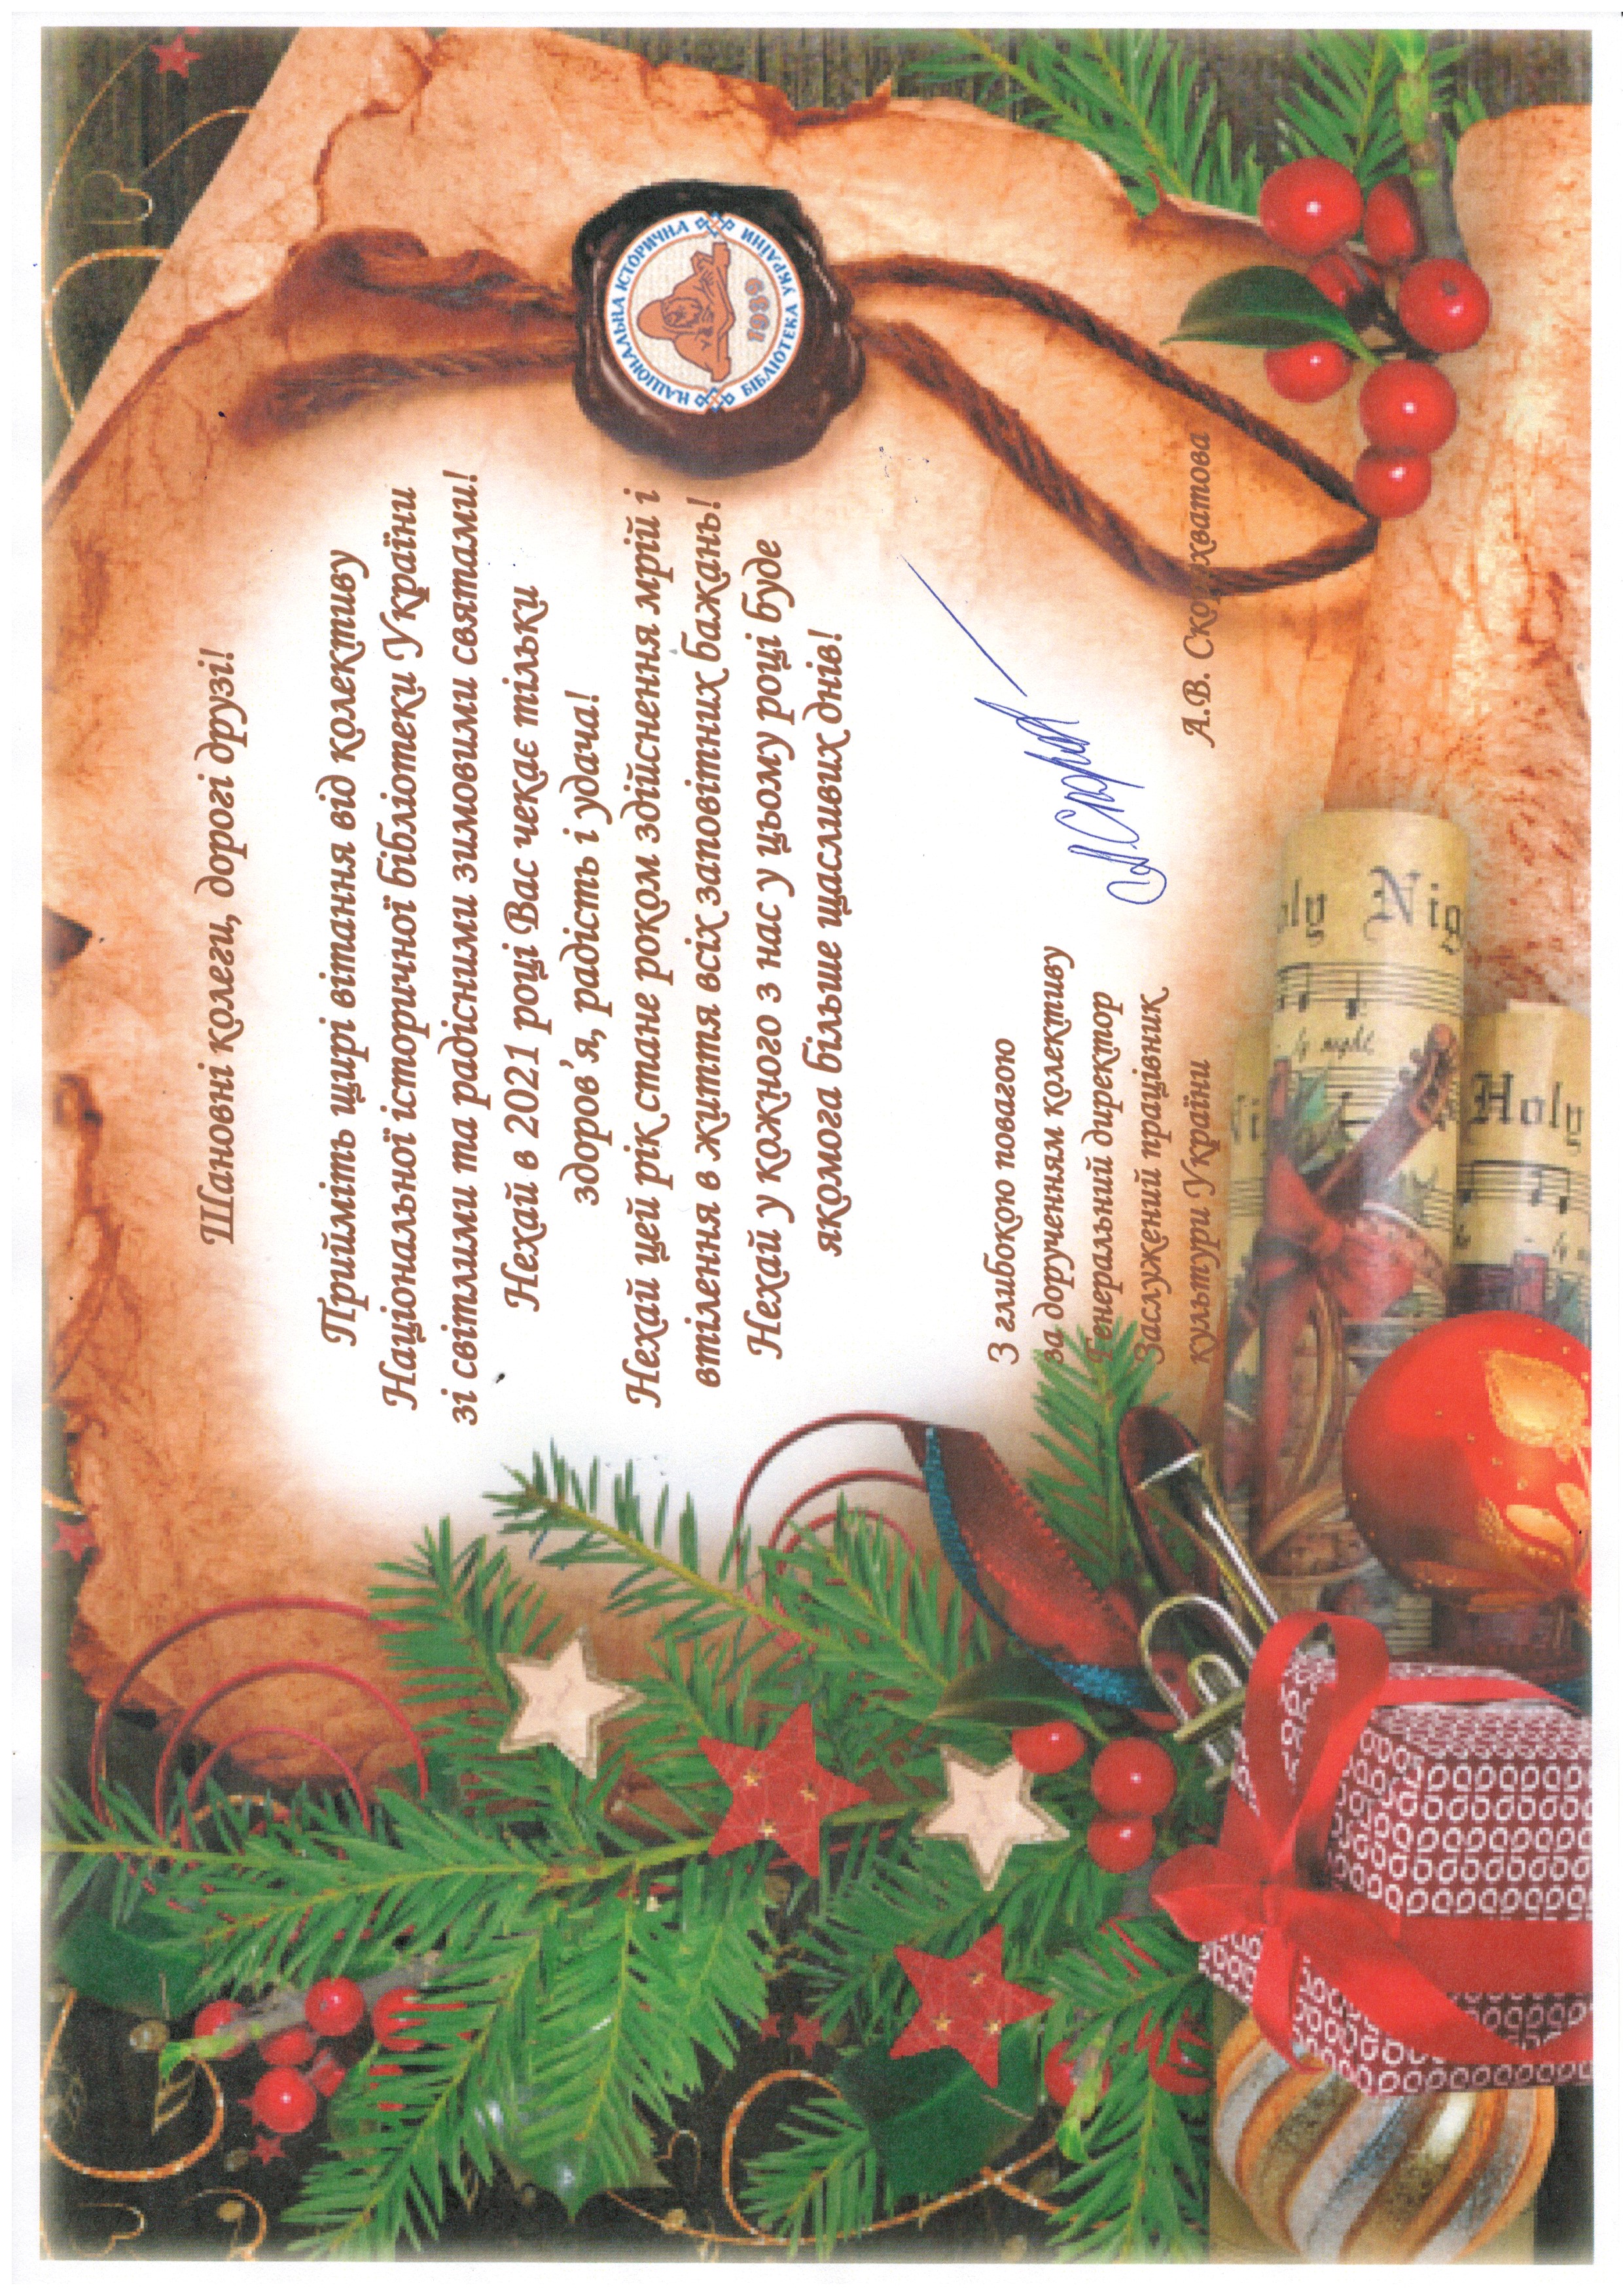 Шановні колеги, дорогі друзі!
Прийміть щирі вітання від колективу
Національної історичної бібліотеки України
зі світлими та радісними зимовими святами!
Нехай в 2021 році Вас чекає тільки
здоров’я, радість і удача!
Нехай цей рік стане роком здійснення мрій і
втілення в життя всіх заповітних бажань!
Нехай у кожного з нас у цьому році буде
якомога більше щасливих днів!
НАЦІОНАЛЬНА ІСТОРИЧНА
БІБЛІОТЕКА УКРАЇНИ
1939
З глибокою повагою
за дорученням колективу
Генеральний директор
Заслужений працівник
культури України
А.В. Скорохватова
Holy